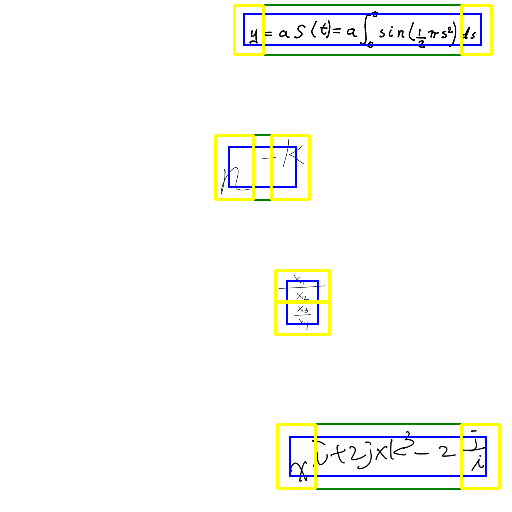 y = a S(t) = a ∫₀⁰ sin(½πs²) ds
n^{-k}
\frac{\frac{x_1}{x_2}}{\frac{x_3}{x_4}}
x^{i+2j} x k^3 - 2 \frac{j}{i}